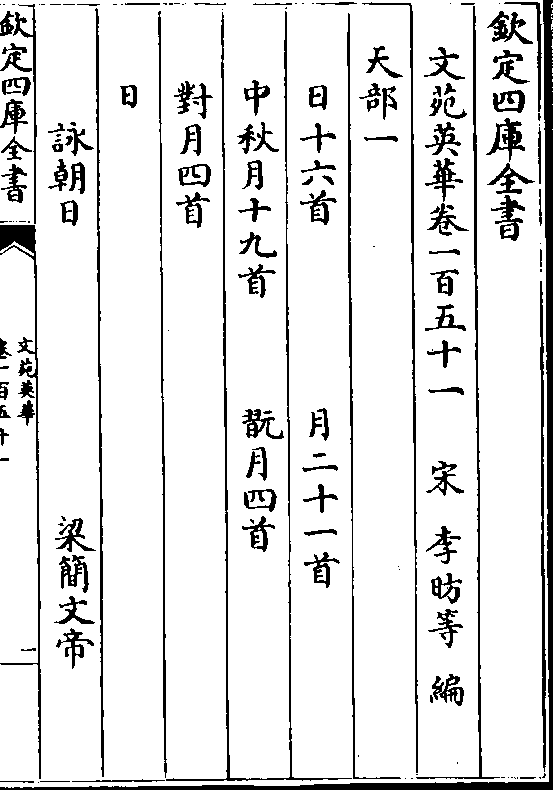 欽定四庫全書
文苑英華卷一百五十一 宋 李昉等 編
天部一
日十六首 月二十一首
中秋月十九首 翫月四首
對月四首
日
詠朝日 梁簡文帝
欽定四庫全書
文苑英華
卷一百五十一
一